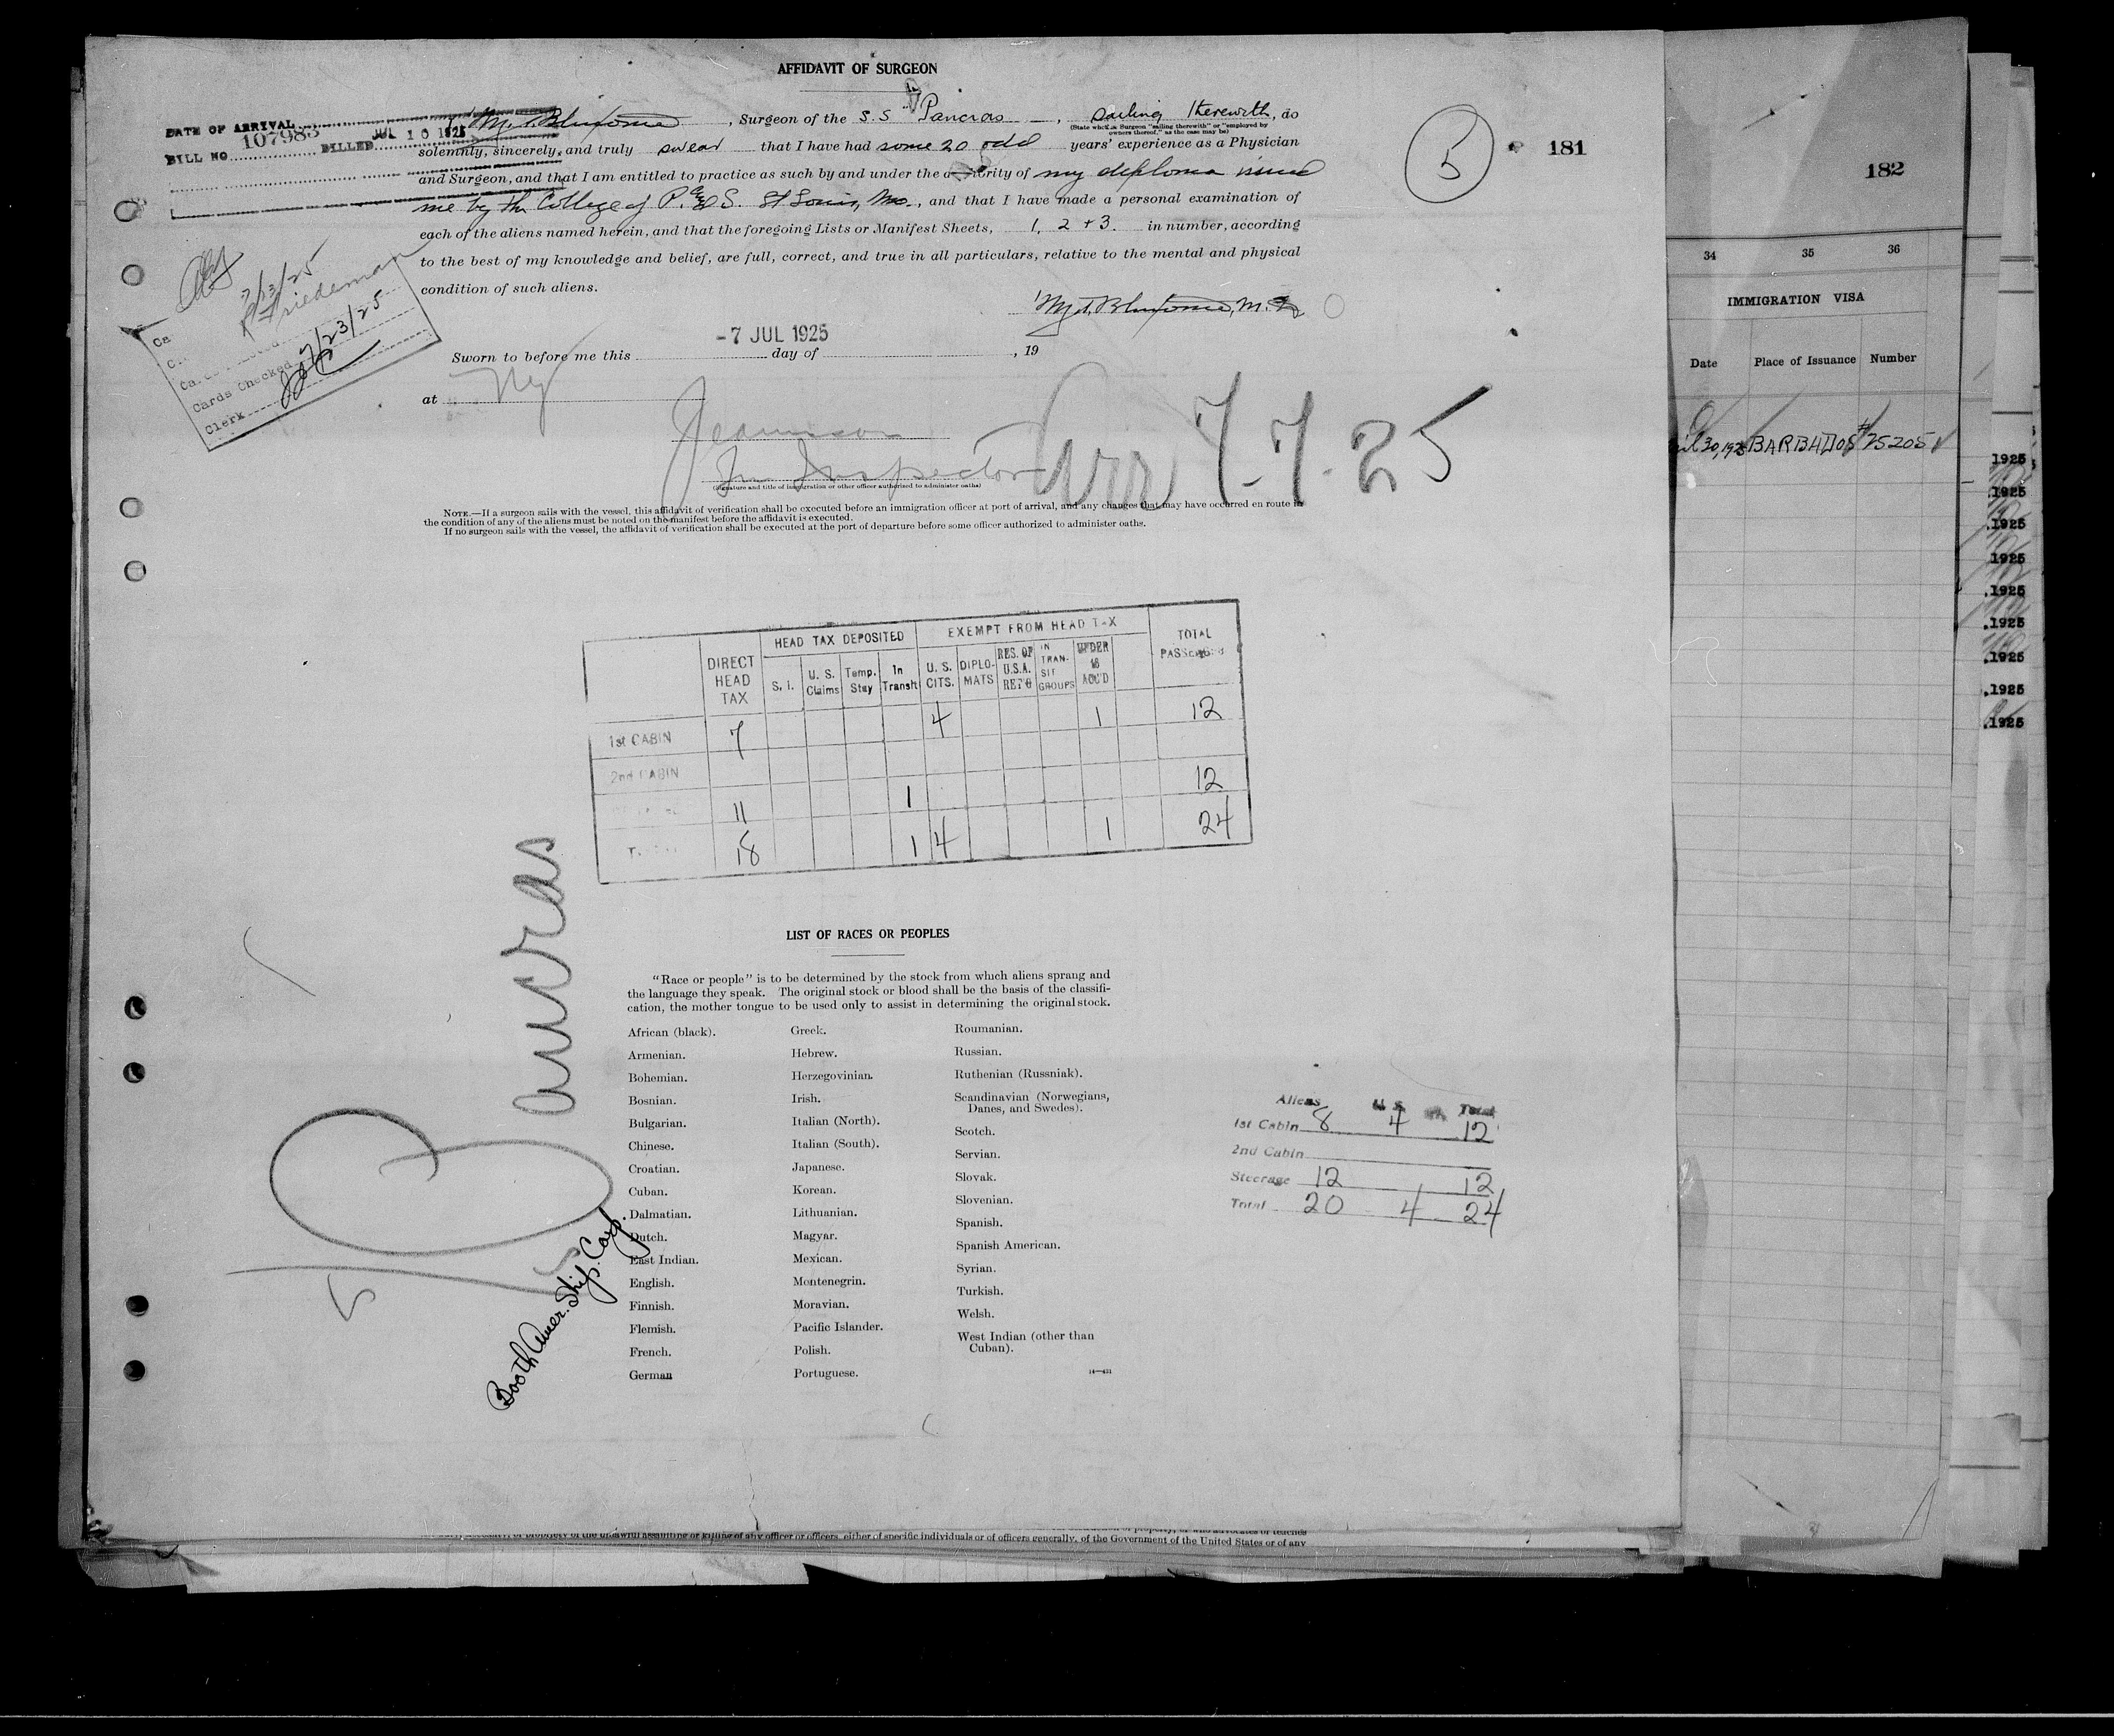 AFFIDAVIT OF SURGEON
DATE OF ARRIVAL
BILL NO. 107983 BILLED JUL 10 1925
I, , Surgeon of the S.S. Pancras, sailing therewith, do
(State whether Surgeon "sailing therewith" or "employed by owners thereof," as the case may be)
solemnly, sincerely, and truly swear that I have had some 20 odd years' experience as a Physician
and Surgeon, and that I am entitled to practice as such by and under the authority of my diploma issued
me by the College of P. and S. St Louis, Mo., and that I have made a personal examination of
each of the aliens named herein, and that the foregoing Lists or Manifest Sheets, 1, 2 + 3. in number, according
to the best of my knowledge and belief, are full, correct, and true in all particulars, relative to the mental and physical
condition of such aliens.
M.D.
-7 JUL 1925
Sworn to before me this day of , 19
at NY
Jeannison
Im Inspector
(Signature and title of immigration or other officer authorized to administer oaths)
Arr 7-7-25
NOTE.—If a surgeon sails with the vessel, this affidavit of verification shall be executed before an immigration officer at port of arrival, and any changes that may have occurred en route in
the condition of any of the aliens must be noted on the manifest before the affidavit is executed.
If no surgeon sails with the vessel, the affidavit of verification shall be executed at the port of departure before some officer authorized to administer oaths.
7/13/25
Friedeman
Cards Checked 7/23/25
Clerk
5
181
DIRECT HEAD TAX HEAD TAX DEPOSITED EXEMPT FROM HEAD TAX TOTAL PASSENGERS
S. I. U. S. Claims Temp. Stay In Transit U. S. CITS. DIPLO-MATS RES. OF U.S.A. RET'G IN TRAN-SIT GROUPS UNDER 16 ACC'D
1st CABIN 7 4 1 12
2nd CABIN
11 1 12
18 1 4 1 24
Pancras
5
Booth Amer. Ship. Corp.
LIST OF RACES OR PEOPLES
"Race or people" is to be determined by the stock from which aliens sprang and
the language they speak. The original stock or blood shall be the basis of the classifi-
cation, the mother tongue to be used only to assist in determining the original stock.
African (black).
Armenian.
Bohemian.
Bosnian.
Bulgarian.
Chinese.
Croatian.
Cuban.
Dalmatian.
Dutch.
East Indian.
English.
Finnish.
Flemish.
French.
German
Greek.
Hebrew.
Herzegovinian.
Irish.
Italian (North).
Italian (South).
Japanese.
Korean.
Lithuanian.
Magyar.
Mexican.
Montenegrin.
Moravian.
Pacific Islander.
Polish.
Portuguese.
Roumanian.
Russian.
Ruthenian (Russniak).
Scandinavian (Norwegians,
Danes, and Swedes).
Scotch.
Servian.
Slovak.
Slovenian.
Spanish.
Spanish American.
Syrian.
Turkish.
Welsh.
West Indian (other than
Cuban).
Aliens U.S. Total
1st Cabin 8 4 12
2nd Cabin
Steerage 12 12
Total 20 4 24
182
34 35 36
IMMIGRATION VISA
Date Place of Issuance Number
30, 1925 BARBADOS #25205
1925
.1925
.1925
.1925
.1925
.1925
.1925
.1925
.1925
unlawful assaulting or killing of any officer or officers, either of specific individuals or of officers generally, of the Government of the United States or of any